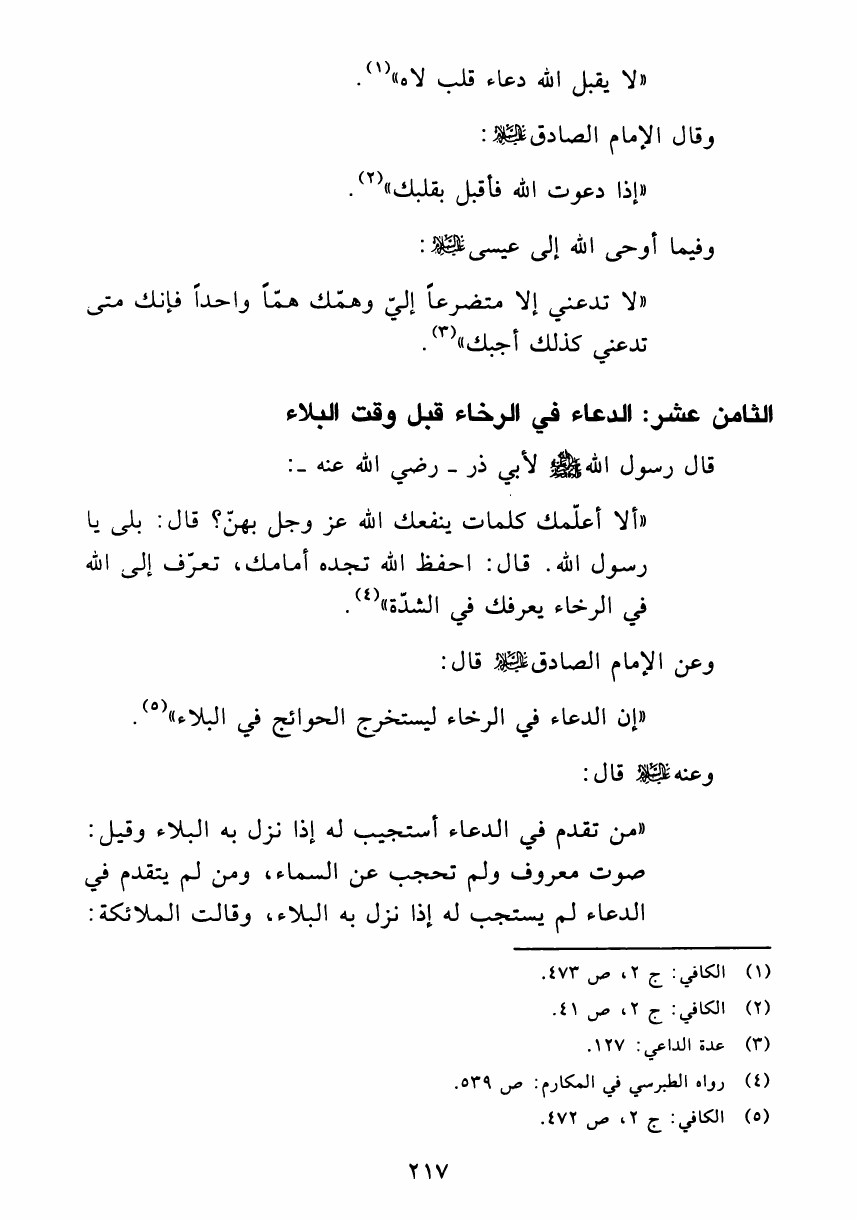 «لا يقبل الله دعاء قلب لاه»(١).
وقال الإمام الصادق عليه السلام:
«إذا دعوت الله فأقبل بقلبك»(٢).
وفيما أوحى الله إلى عيسى عليه السلام:
«لا تدعني إلا متضرعاً إليّ وهمّك همّاً واحداً فإنك متى
تدعني كذلك أجبك»(٣).
الثامن عشر: الدعاء في الرخاء قبل وقت البلاء
قال رسول الله ﷺ لأبي ذر ـ رضي الله عنه ـ:
«ألا أعلّمك كلمات ينفعك الله عز وجل بهنّ؟ قال: بلى يا
رسول الله. قال: احفظ الله تجده أمامك، تعرّف إلى الله
في الرخاء يعرفك في الشدّة»(٤).
وعن الإمام الصادق عليه السلام قال:
«إن الدعاء في الرخاء ليستخرج الحوائج في البلاء»(٥).
وعنه عليه السلام قال:
«من تقدم في الدعاء أستجيب له إذا نزل به البلاء وقيل:
صوت معروف ولم تحجب عن السماء، ومن لم يتقدم في
الدعاء لم يستجب له إذا نزل به البلاء، وقالت الملائكة:
(١) الكافي: ج ٢، ص ٤٧٣.
(٢) الكافي: ج ٢، ص ٤١.
(٣) عدة الداعي: ١٢٧.
(٤) رواه الطبرسي في المكارم: ص ٥٣٩.
(٥) الكافي: ج ٢، ص ٤٧٢.
٢١٧